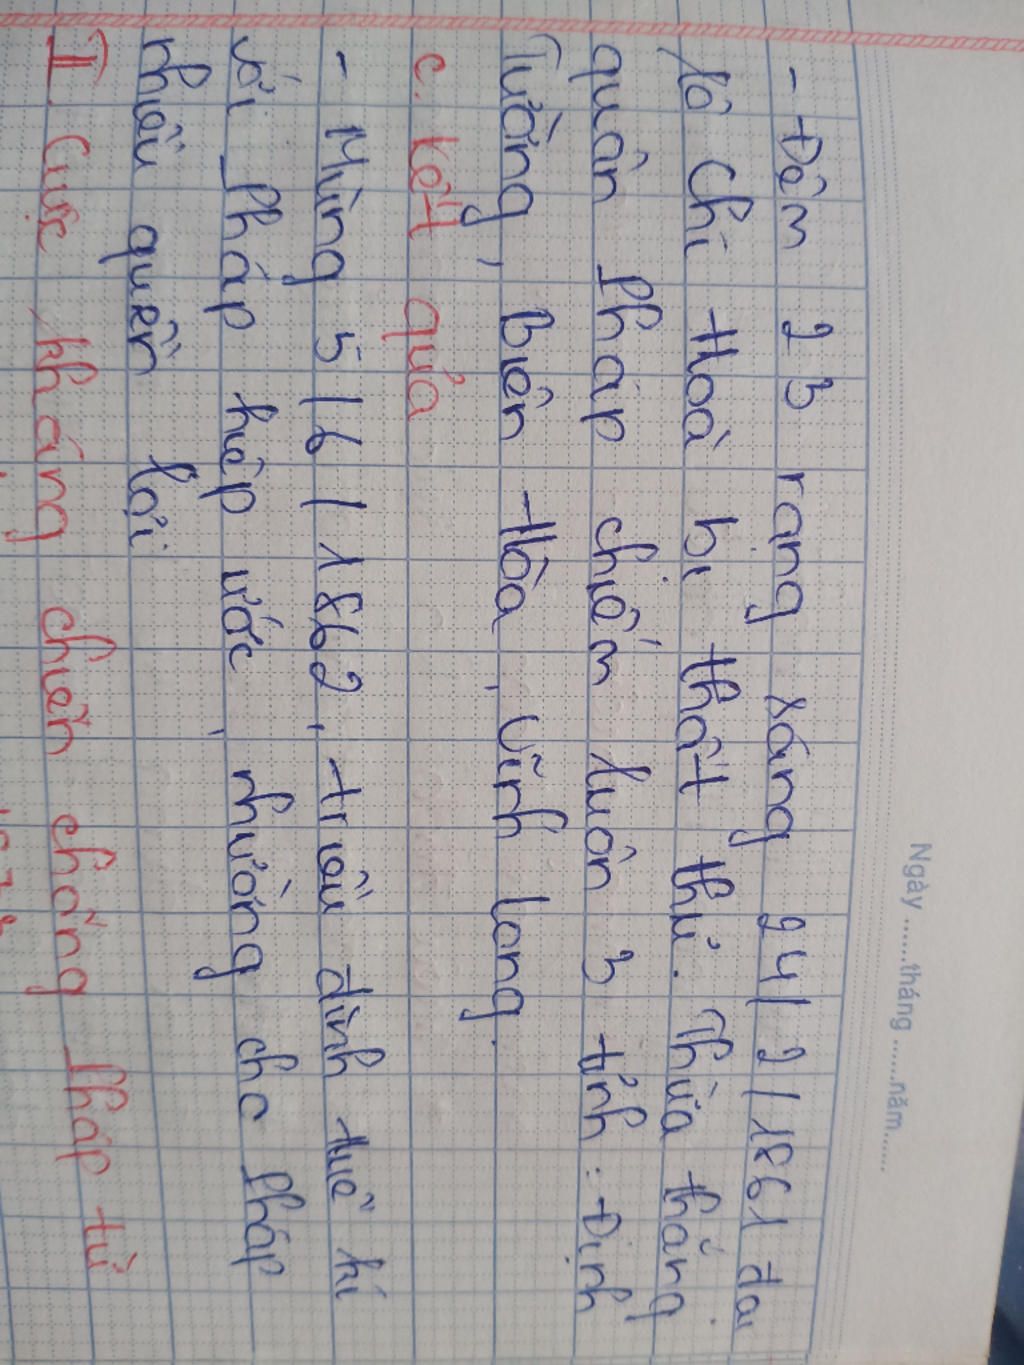 Ngày ......tháng ......năm......
- Đêm 23 rạng xáng 24/2/1861 đại
lô Chí Hoà bị thất thủ. Thừa thắng
quân Pháp chiếm luôn 3 tỉnh : Định
Tường, Biên Hòa, Vĩnh Long.
c. Kết quả
- Mùng 5/6/1862, triều đình Huế kí
với Pháp hiệp ước, nhường cho Pháp
nhiều quyền lợi
II. Cuộc kháng chiến chống Pháp từ